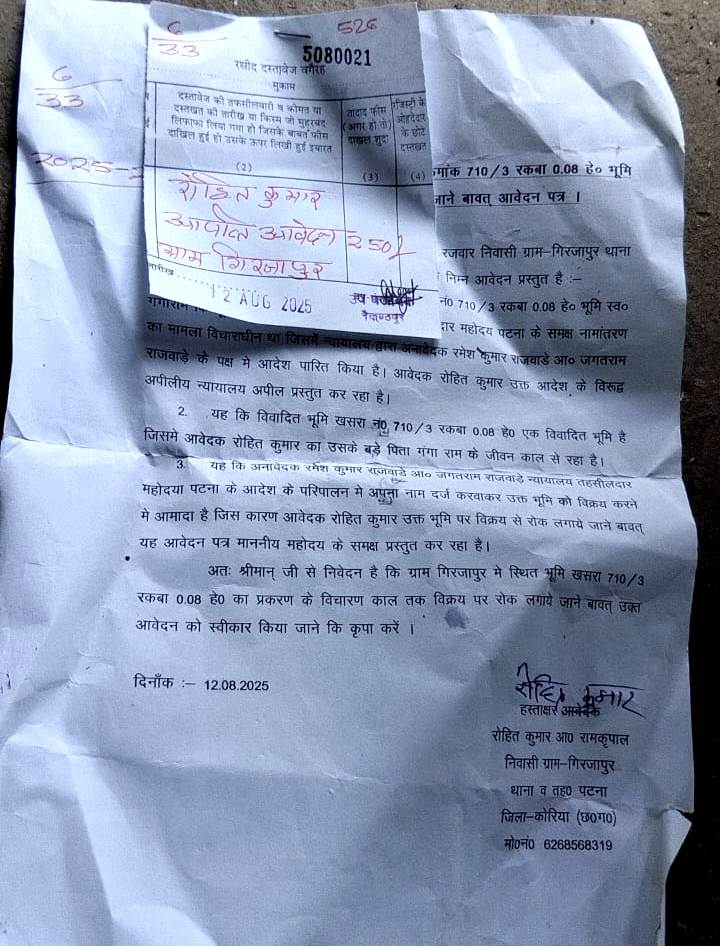 6
33
526
6
33
5080021
रसीद दस्तावेज वगैरह
मुकाम
दस्तावेज की तफसीलबारी व कीमत या
दस्तखत की तारीख या किस्म जो मुहरबंद
लिफाफा लिया गया हो जिसके बाबत फीस
दाखिल हुई हो उसके ऊपर लिखी हुई इबारत
तादाद फीस
(अगर हो तो)
दाखल शुदा
रजिस्ट्री के
ओहदेदार
के छोटे
दस्तखत
(2)
(3)
(4)
2025-
रोहित कुमार
आपत्ति आवेदन 250/
ग्राम गिरजापुर
तारीख
12 AUG 2025
उप पंजीयक
बैकुण्ठपुर
710/3 रकबा 0.08 हे० भूमि
जाने बावत् आवेदन पत्र ।
रजवार निवासी ग्राम–गिरजापुर थाना
निम्न आवेदन प्रस्तुत है :–
नं0 710/3 रकबा 0.08 हे० भूमि स्व०
गंगाराम
दार महोदय पटना के समक्ष नामांतरण
का मामला विचाराधीन था जिसमें न्यायालय द्वारा अनावेदक रमेश कुमार राजवाडे आ० जगतराम
राजवाड़े के पक्ष मे आदेश पारित किया है। आवेदक रोहित कुमार उक्त आदेश के विरूद्व
अपीलीय न्यायालय अपील प्रस्तुत कर रहा है।
2. यह कि विवादित भूमि खसरा नं0 710/3 रकबा 0.08 हे0 एक विवादित भूमि है
जिसमे आवेदक रोहित कुमार का उसके बड़े पिता गंगा राम के जीवन काल से रहा है।
3. यह कि अनावेदक रमेश कुमार राजवाडे आ० जगतराम राजवाडे न्यायालय तहसीलदार
महोदया पटना के आदेश के परिपालन मे अपना नाम दर्ज करवाकर उक्त भूमि को विक्रय करने
मे आमादा है जिस कारण आवेदक रोहित कुमार उक्त भूमि पर विक्रय से रोक लगाये जाने बावत्
यह आवेदन पत्र माननीय महोदय के समक्ष प्रस्तुत कर रहा है।
अतः श्रीमान् जी से निवेदन है कि ग्राम गिरजापुर मे स्थित भूमि खसरा 710/3
रकबा 0.08 हे0 का प्रकरण के विचारण काल तक विक्रय पर रोक लगाये जाने बावत् उक्त
आवेदन को स्वीकार किया जाने कि कृपा करें ।
दिनाँक :– 12.08.2025
रोहित कुमार
हस्ताक्षर आवेदक
रोहित कुमार आ0 रामकृपाल
निवासी ग्राम–गिरजापुर
थाना व तह0 पटना
जिला–कोरिया (छ0ग0)
मो0नं0 6268568319